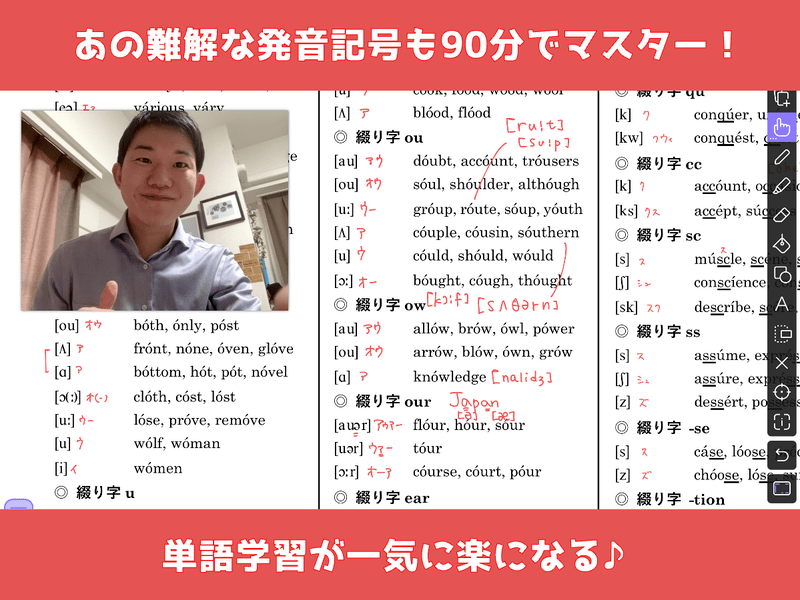 あの難解な発音記号も90分でマスター！
[eə] エア várious, váry
[ou] オウ bóth, ónly, póst
[ʌ] ア frónt, nóne, óven, glóve
[ɑ] ア bóttom, hót, pót, nóvel
[ɔ(ː)] オ(-) clóth, cóst, lóst
[uː] ウー lóse, próve, remóve
[u] ウ wólf, wóman
[i] イ wómen
◎ 綴り字 u
cook, food, wood, wool
[ʌ] ア blóod, flóod
[ruːt]
◎ 綴り字 ou
[suːp]
[au] アウ dóubt, accóunt, tróusers
[ou] オウ sóul, shóulder, althóugh
[uː] ウー gróup, róute, sóup, yóuth
[ʌ] ア cóuple, cóusin, sóuthern
[u] ウ cóuld, shóuld, wóuld
[ɔː] オー bóught, cóugh, thóught
◎ 綴り字 ow
[kɔːf] [sʌðərn]
[au] アウ allów, brów, ówl, pówer
[ou] オウ arrów, blów, ówn, grów
[ɑ] ア knówledge [nɑlidʒ]
◎ 綴り字 our
Japan
[ə] [æ]
[auər] アウアー flóur, hóur, sóur
[uər] ウアー tóur
[ɔːr] オーア cóurse, cóurt, póur
◎ 綴り字 ear
◎ 綴り字 qu
[k] ク conqúer,
[kw] クウィ conqúest,
◎ 綴り字 cc
[k] ク accóunt,
[ks] クス accépt,
◎ 綴り字 sc
ス
[s] ス múscle, scene,
[ʃ] シュ conscíence,
[sk] スク descríbe,
◎ 綴り字 ss
[s] ス assúme,
[ʃ] シュ assúre,
[z] ズ dessért,
◎ 綴り字 -se
[s] ス cáse, lóose,
[z] ズ chóose, lóse,
◎ 綴り字 -tion
単語学習が一気に楽になる♪